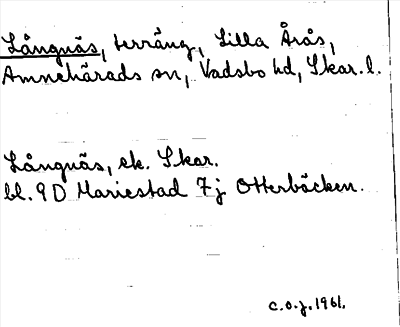 Långnäs, terräng, Lilla Årås,
Amnehärads sn, Vadsbo hd, Skar. l.
Långnäs, ek. Skar.
bl. 9D Mariestad 7j Otterbäcken.
C.O.J. 1961.